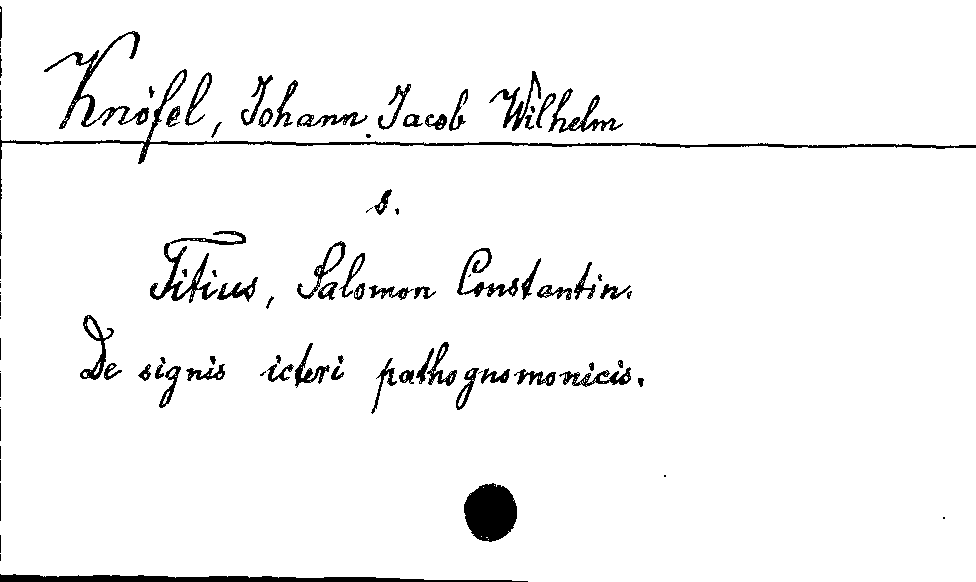 Knöfel, Johann Jacob Wilhelm
s.
Titius, Salomon Constantin.
De signis icteri pathognomonicis.